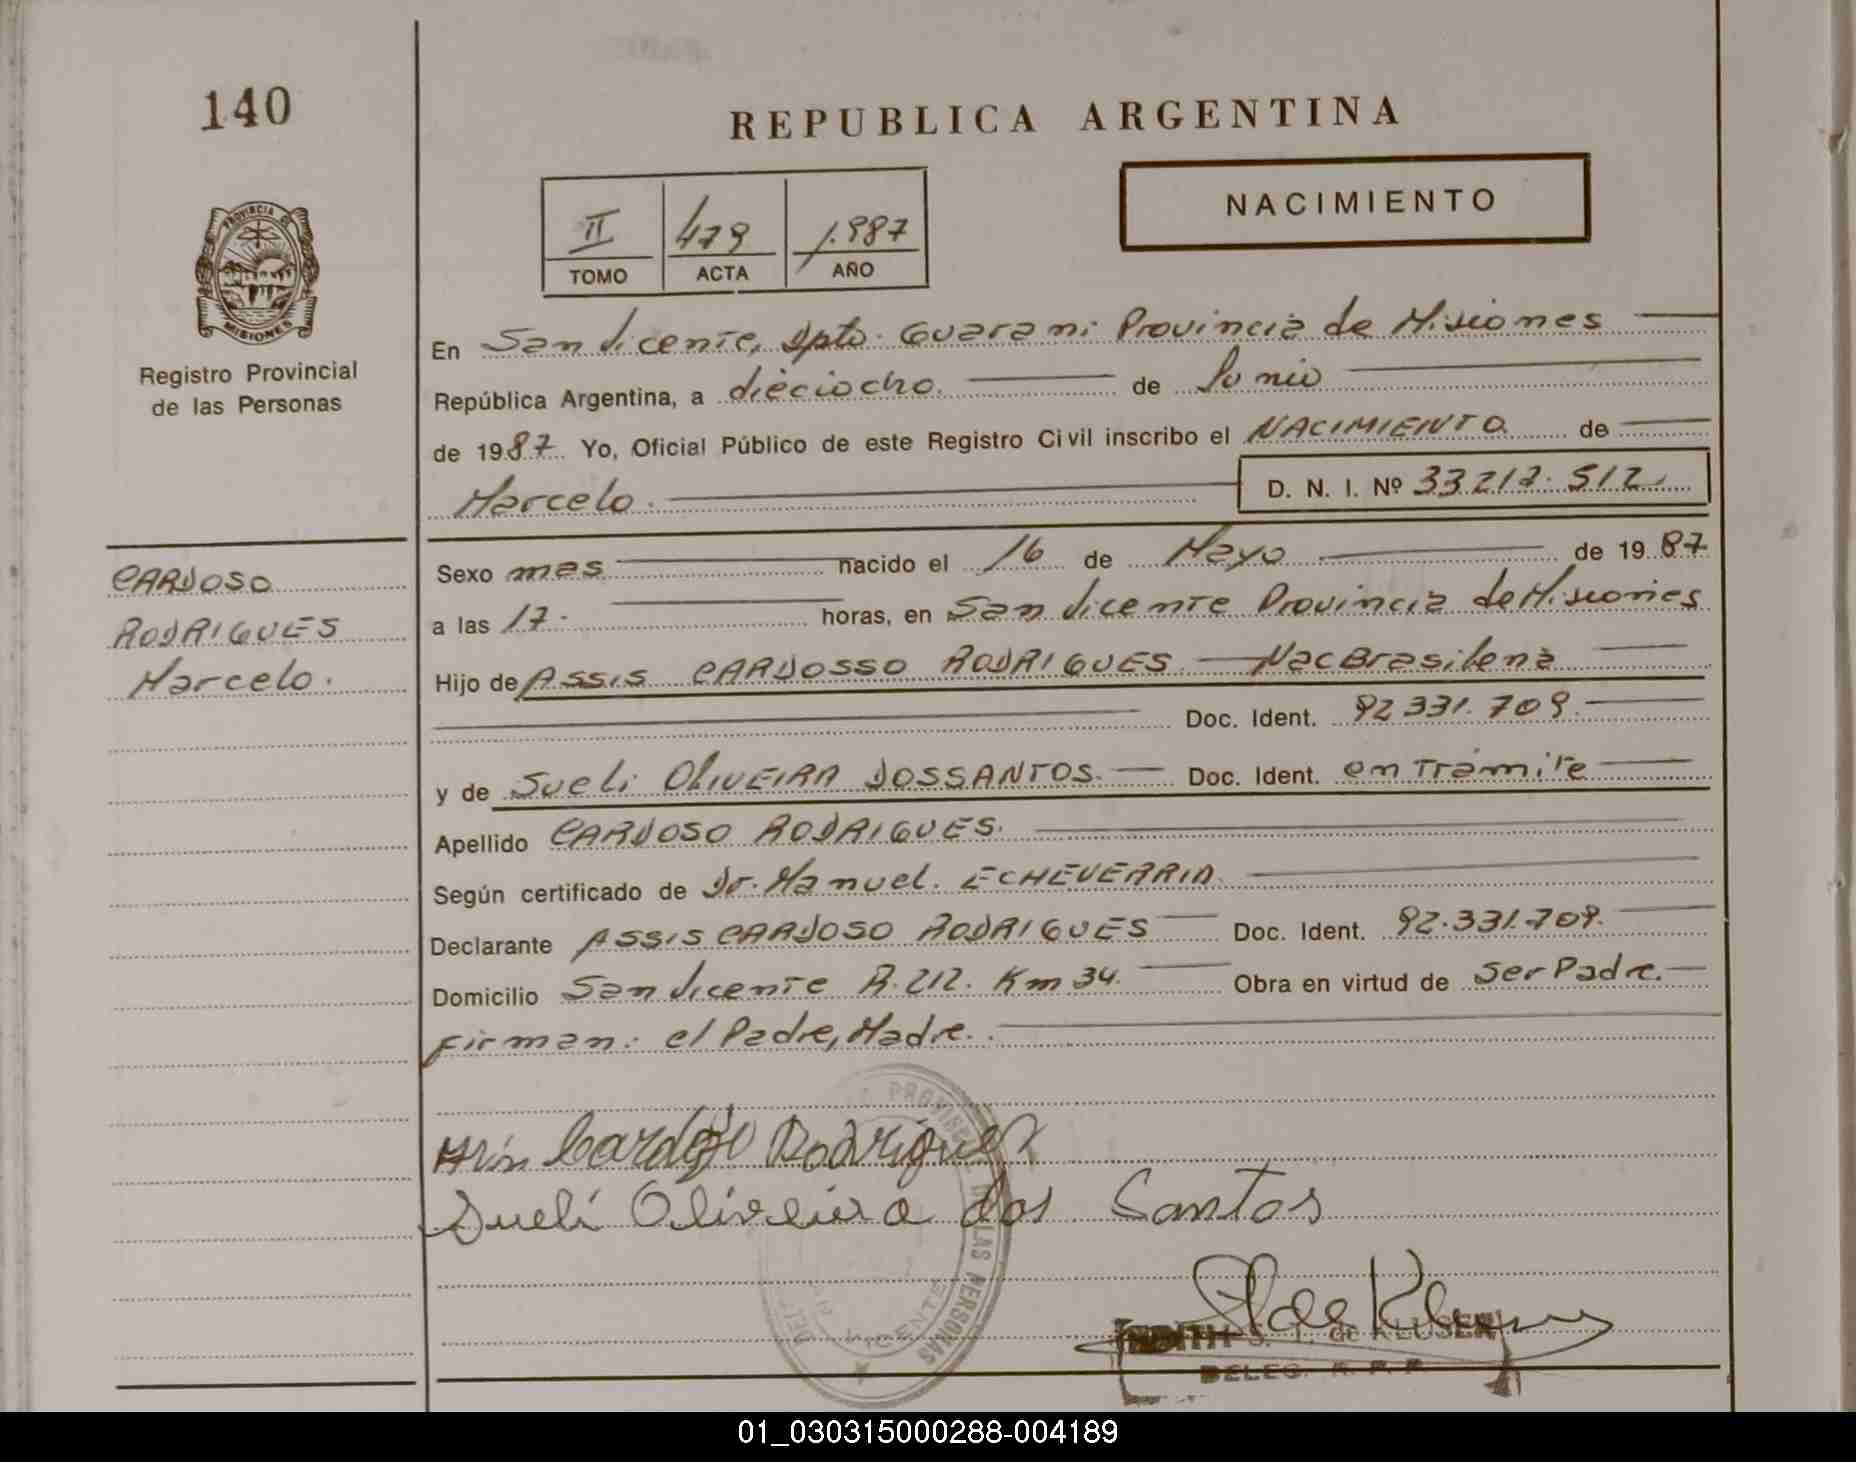 140
REPUBLICA ARGENTINA
PROVINCIA DE
MISIONES
Registro Provincial
de las Personas
NACIMIENTO
II 479 1.987
TOMO ACTA AÑO
En San Vicente, Dpto. Guarani Provincia de Misiones
República Argentina, a dieciocho. de Junio
de 1987. Yo, Oficial Público de este Registro Civil inscribo el NACIMIENTO de
Marcelo. D. N. I. Nº 33.212.512.
CARDOSO
RODRIGUES
Marcelo.
Sexo mas nacido el 16 de Mayo de 1987
a las 17. horas, en San Vicente Provincia de Misiones
Hijo de ASSIS CARDOSSO RODRIGUES. Nac Brasilena
Doc. Ident. 92.331.709.
y de Sueli OLIVEIRA DOSSANTOS. Doc. Ident. en Tramite
Apellido CARDOSO RODRIGUES.
Según certificado de Dr. Manuel. ECHEVERRIA.
Declarante ASSIS CARDOSO RODRIGUES Doc. Ident. 92.331.709.
Domicilio San Vicente R. 212. Km 34. Obra en virtud de Ser Padre.
Firman: el Padre, Madre.
Cardoso Rodrigues
Sueli Oliveira dos Santos
PROVINCIAL DE LAS PERSONAS
VICENTE
de KEUSER
DELEG. R. P. P.
01_030315000288-004189